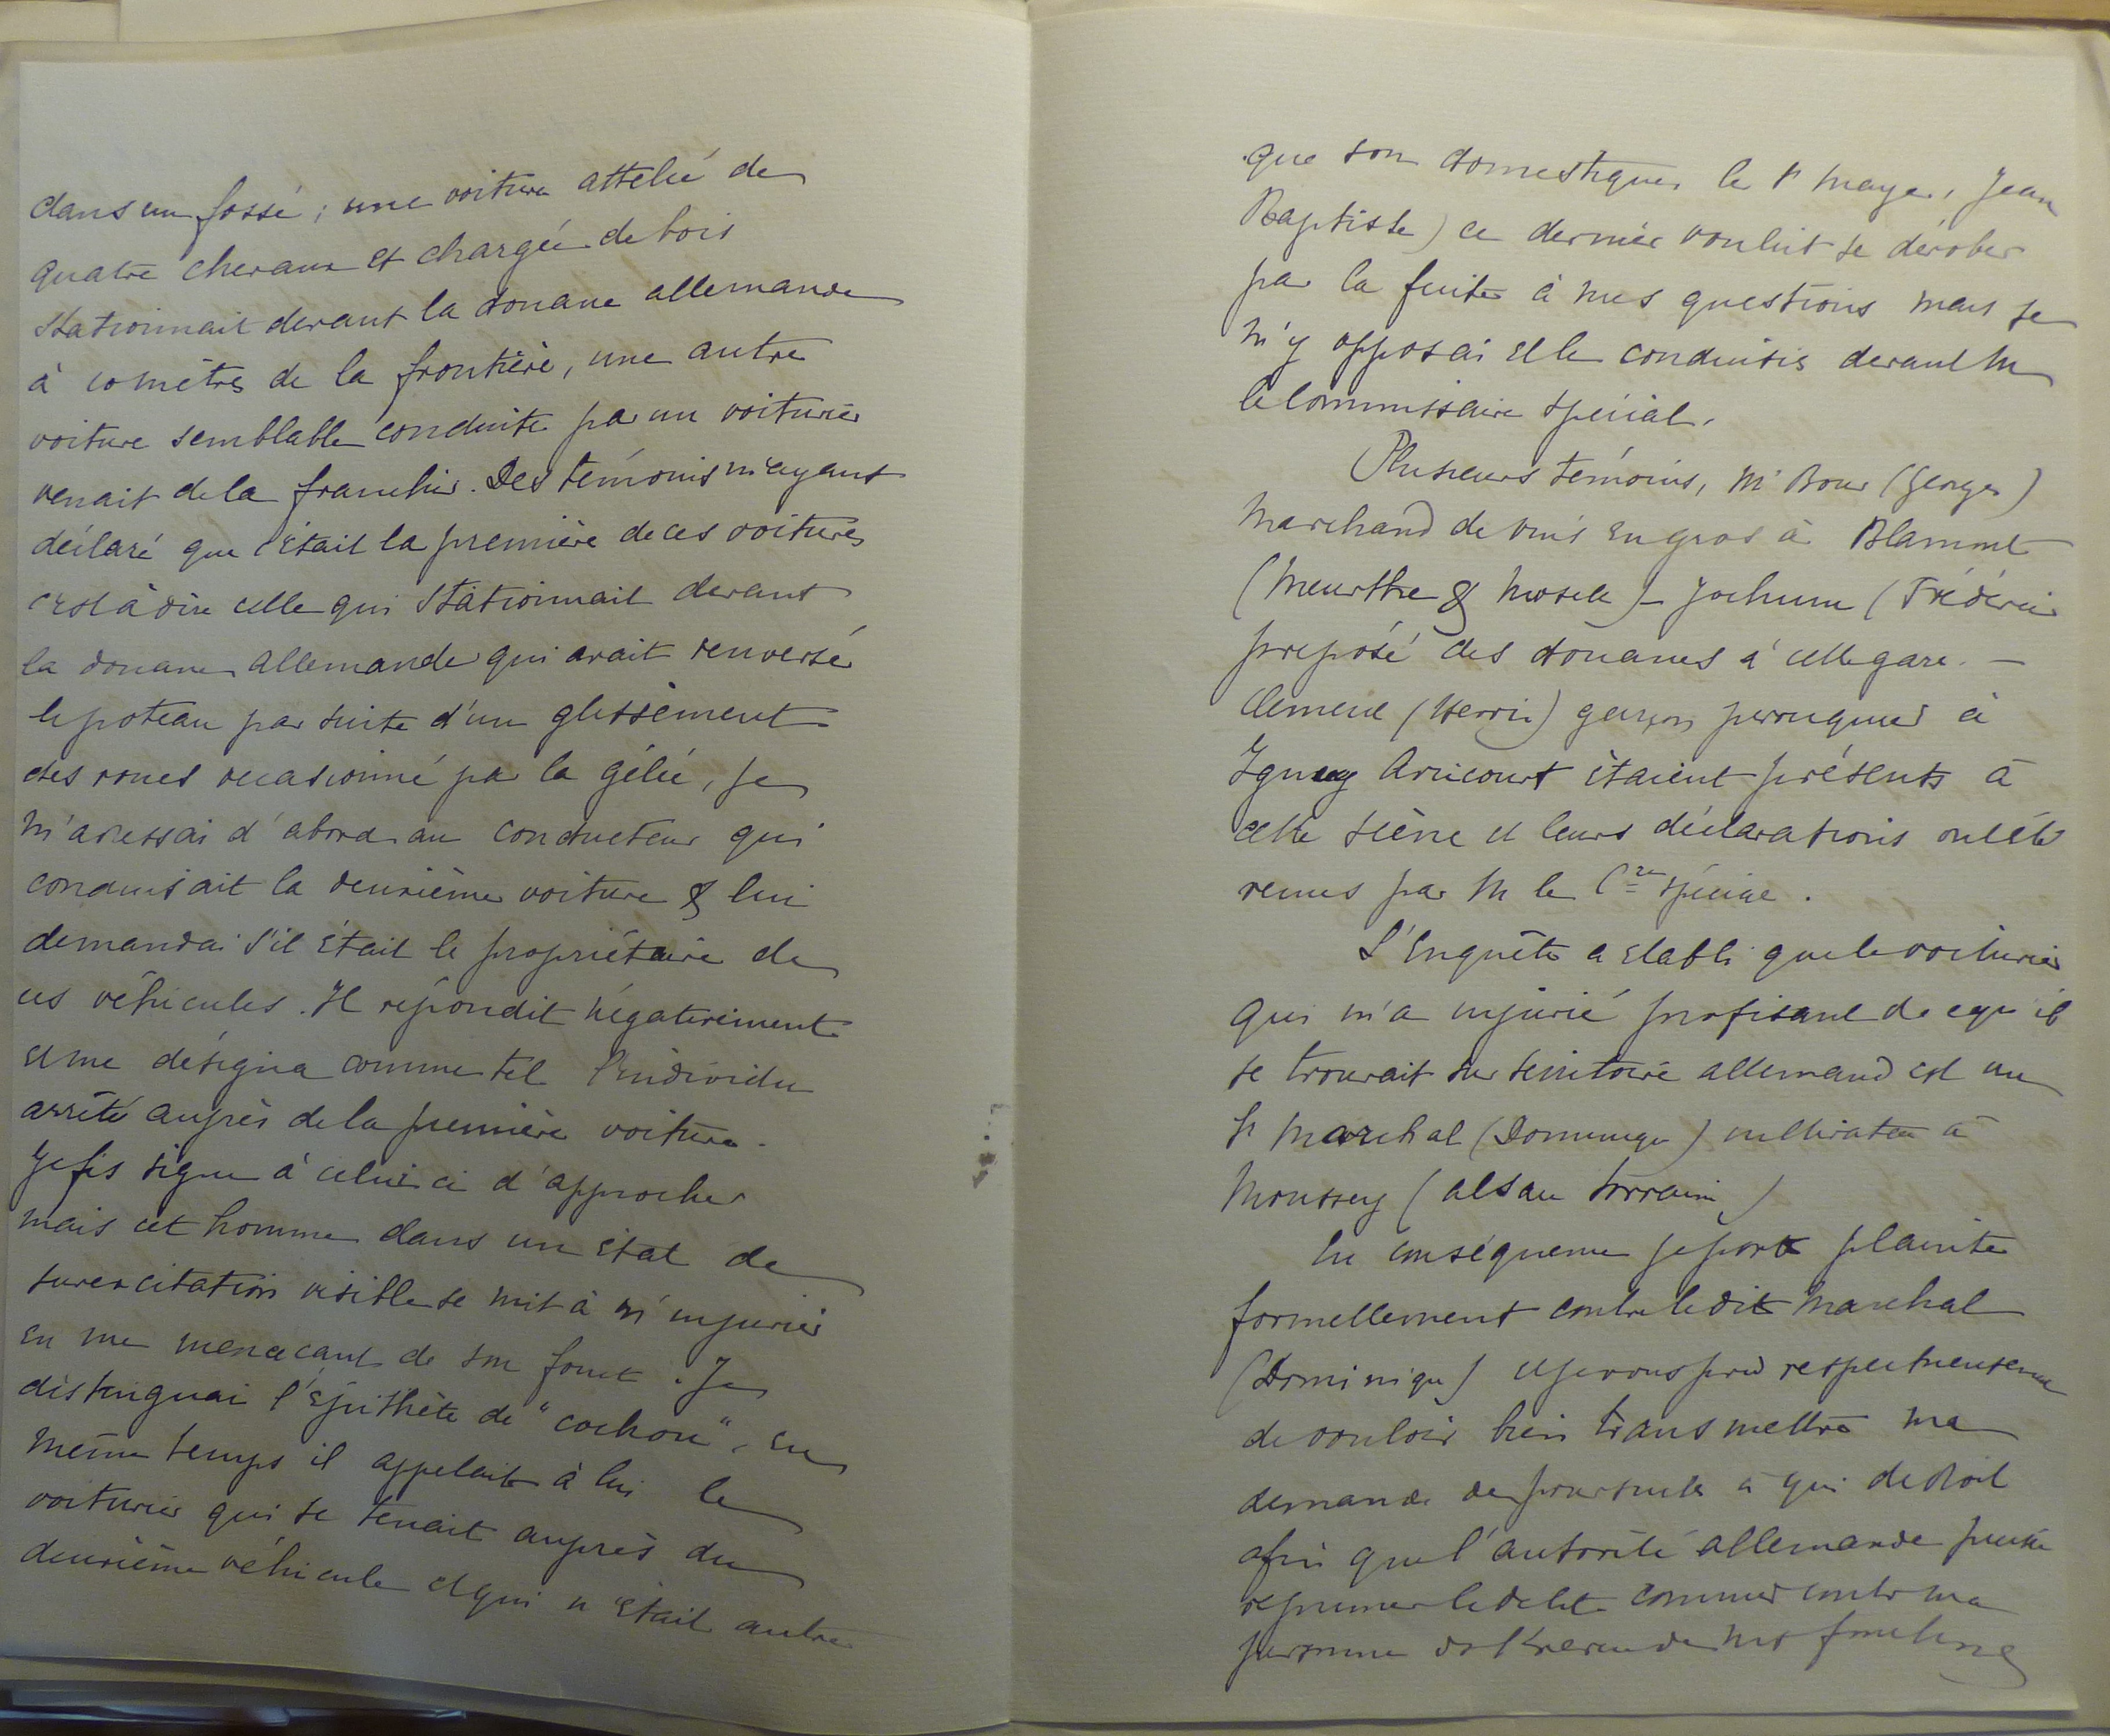 dans un fossé ; une voiture attelée de
quatre chevaux et chargée de bois
stationnait devant la douane allemande
à 10 mètres de la frontière, une autre
voiture semblable conduite par un voiturier
venait de la franchir. Des témoins m'ayant
déclaré que c'était la première de ces voitures
c'est à dire celle qui stationnait devant
la douane allemande qui avait renversé
le poteau par suite d'un glissement
des roues occasionné par la gelée, je
m'adressai d'abord au conducteur qui
conduisait la deuxième voiture & lui
demandai s'il était le propriétaire de
ces véhicules. Il répondit négativement
et me désigna comme tel l'individu
arrêté auprès de la première voiture.
Je fis signe à celui ci d'approcher
mais cet homme dans un état de
surexcitation visible se mit à m'injurier
en me menaçant de son fouet. Je
distinguai l'épithète de "cochon". En
même temps il appelait à lui le
voiturier qui se tenait auprès du
deuxième véhicule et qui n'était autre
que son domestique, le Sr Mayer, Jean
Baptiste) ce dernier voulut se dérober
par la fuite à mes questions mais je
m'y opposai et le conduisis devant M
le Commissaire spécial.
Plusieurs témoins, Mr Bour (Georges)
Marchand de vins en gros à Blamont
(Meurthe & Moselle) - Jochum (Frédéric
préposé des douanes à cette gare. -
Clement (Henri) garçon perruquier à
Igney Avricourt étaient présents à
cette scène et leurs déclarations ont été
reçues par M le Cre spécial.
L'Enquête a établi que le voiturier
qui m'a injurié profitant de ce qu'il
se trouvait sur territoire allemand est un
Sr Marchal (Dominique) cultivateur à
Moussey (Alsace Lorraine)
En conséquence je porte plainte
formellement contre le dit Marchal
(Dominique) et je vous prie respectueusement
de vouloir bien transmettre ma
demande de poursuites à qui de droit
afin que l'autorité allemande puisse
réprimer le délit commis contre ma
personne dans l'exercice de mes fonctions